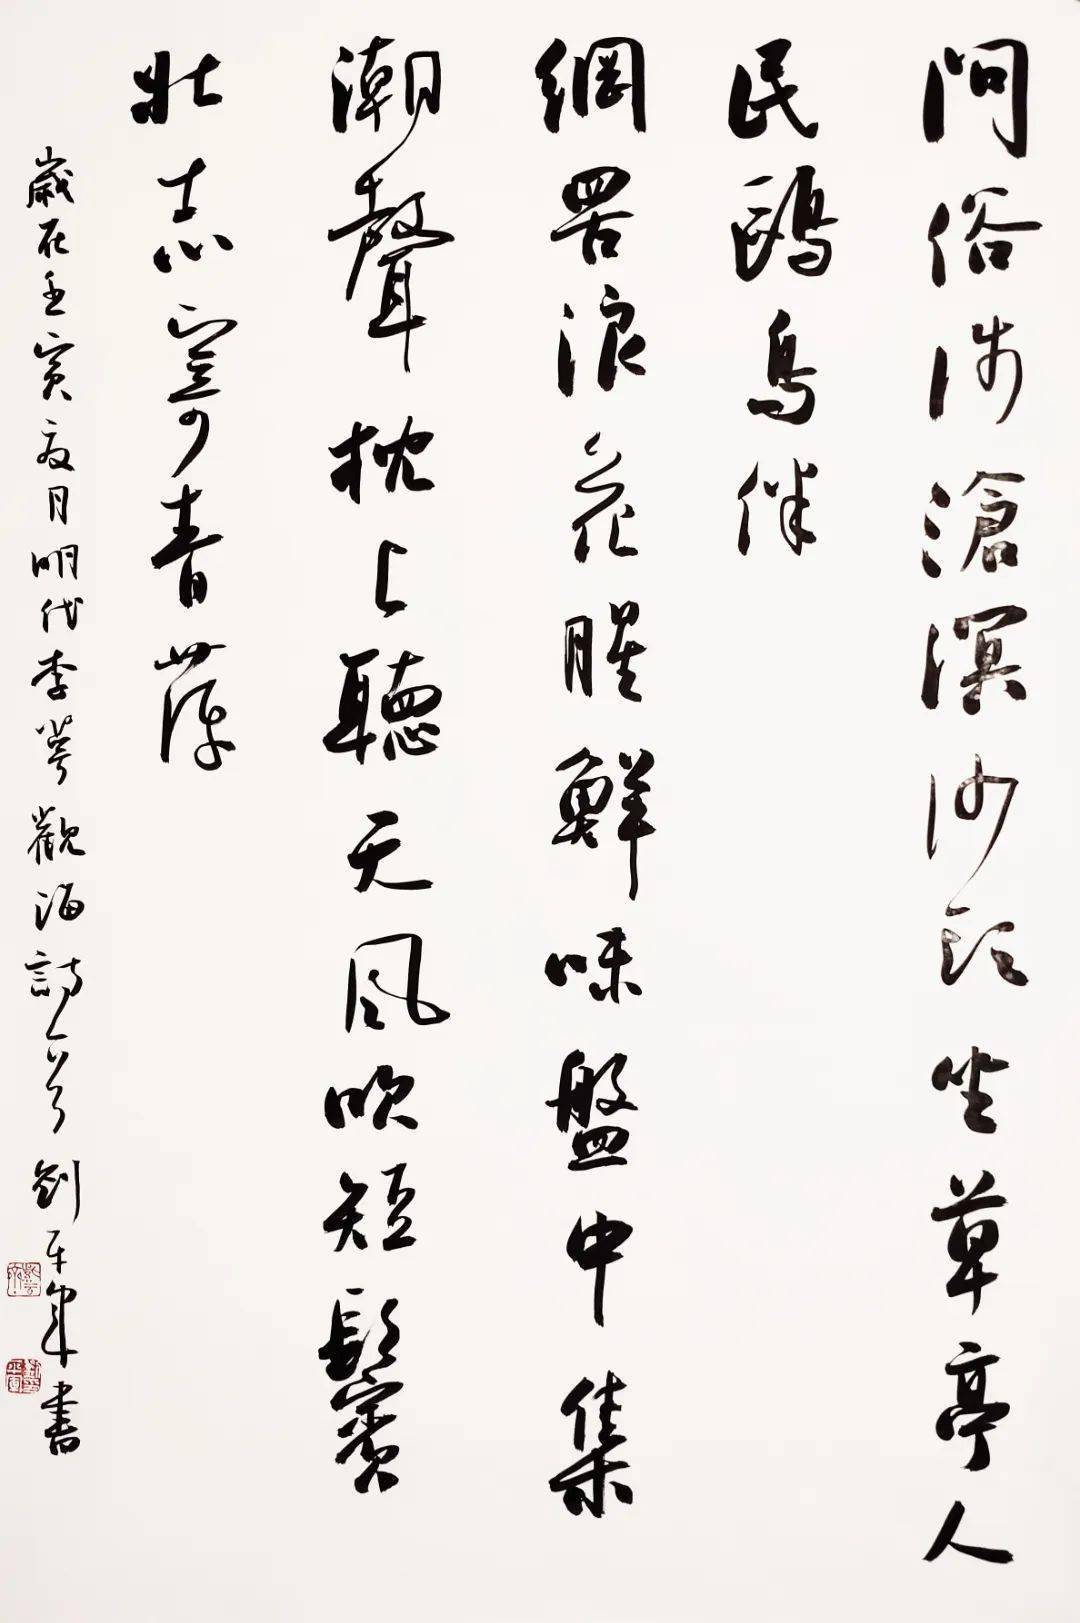 问俗涉滄溟沙頭坐草亭人
民鷗鳥伴
網罟浪花腥鮮味盤中集
潮聲枕上聽天风吹短鬢
壯志寄青萍
歲在壬寅夏月明代李萼觀海詩一首劉平軍書